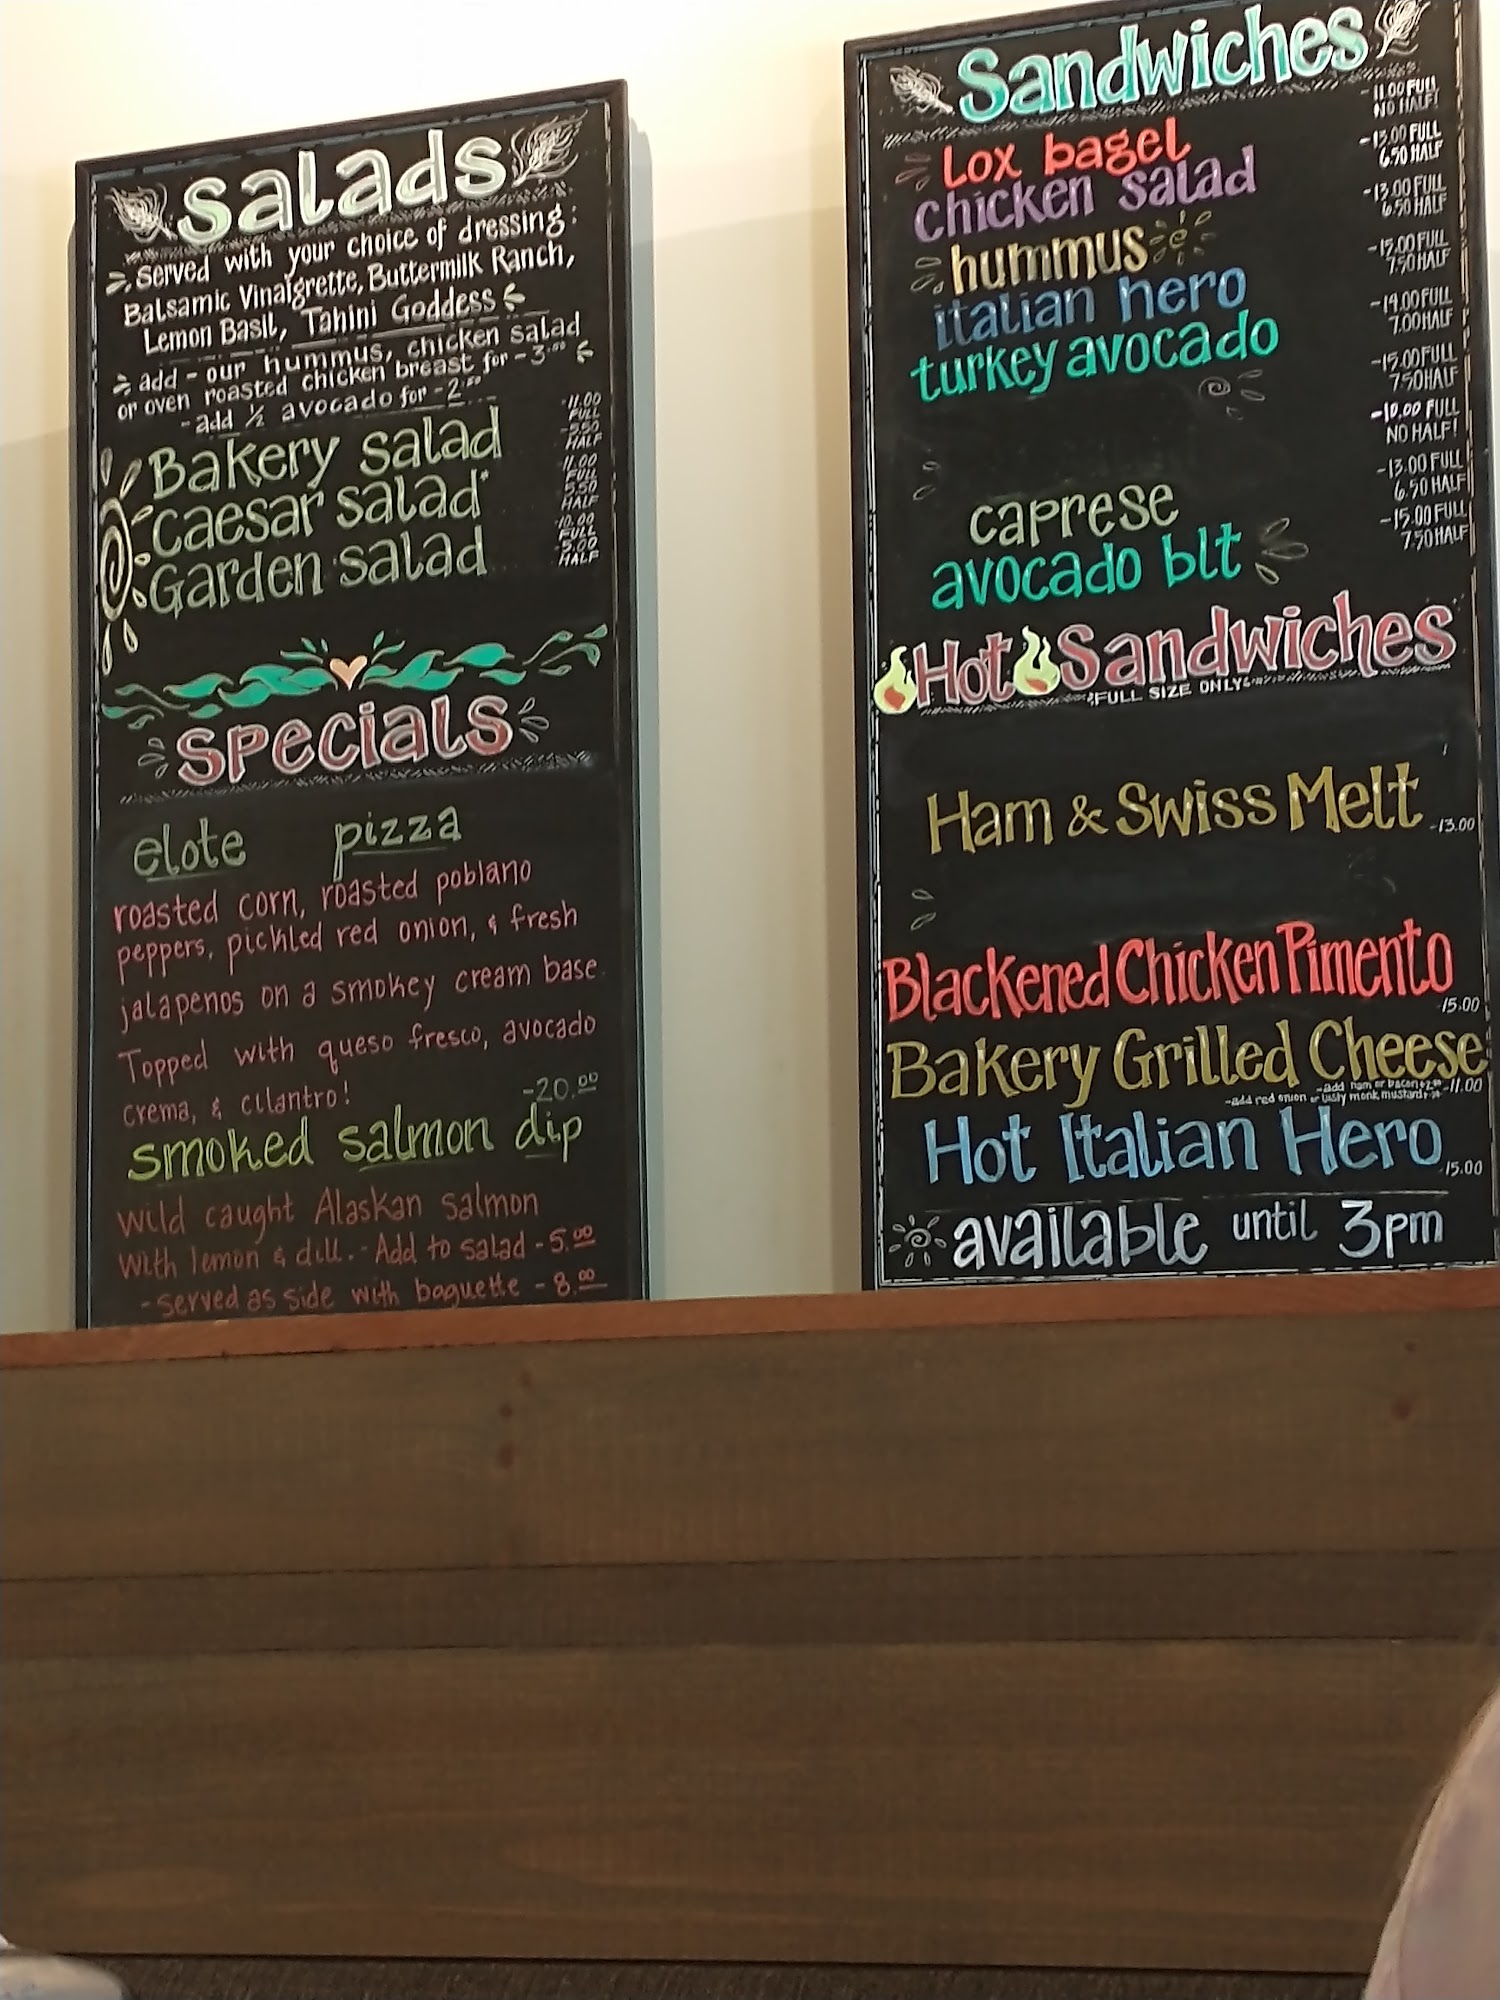 Salads
served with your choice of dressing:
Balsamic Vinaigrette, Buttermilk Ranch,
Lemon Basil, Tahini Goddess
add - our hummus, chicken salad
or oven roasted chicken breast for - 3.00
- add ½ avocado for - 2.00
Bakery salad
-11.00 FULL
-5.50 HALF
Caesar salad*
11.00 FULL
5.50 HALF
Garden salad
10.00 FULL
-5.00 HALF
Specials
elote pizza
roasted corn, roasted poblano
peppers, pickled red onion, & fresh
jalapenos on a smokey cream base.
Topped with queso fresco, avocado
crema, & cilantro!
-20.00
smoked salmon dip
wild caught Alaskan salmon
with lemon & dill. - Add to salad - 5.00
- served as side with baguette - 8.00
Sandwiches
Lox bagel
chicken salad
hummus
italian hero
turkey avocado
caprese
avocado blt
- 11.00 FULL
NO HALF!
-13.00 FULL
6.50 HALF
-13.00 FULL
6.50 HALF
-15.00 FULL
7.50 HALF
-14.00 FULL
7.00 HALF
-15.00 FULL
7.50 HALF
-10.00 FULL
NO HALF!
-13.00 FULL
6.50 HALF
-15.00 FULL
7.50 HALF
Hot Sandwiches
FULL SIZE ONLY
Ham & Swiss Melt
-13.00
Blackened Chicken Pimento
15.00
Bakery Grilled Cheese
-add ham or bacon +2.00
-11.00
-add red onion or lusty monk mustard
Hot Italian Hero
15.00
available until 3pm